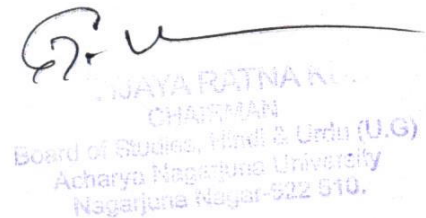 VIJAYA RATNA
CHAIRMAN
Board of Studies, Hindi & Urdu (U.G)
Acharya Nagarjuna University
Nagarjuna Nagar-522 510.